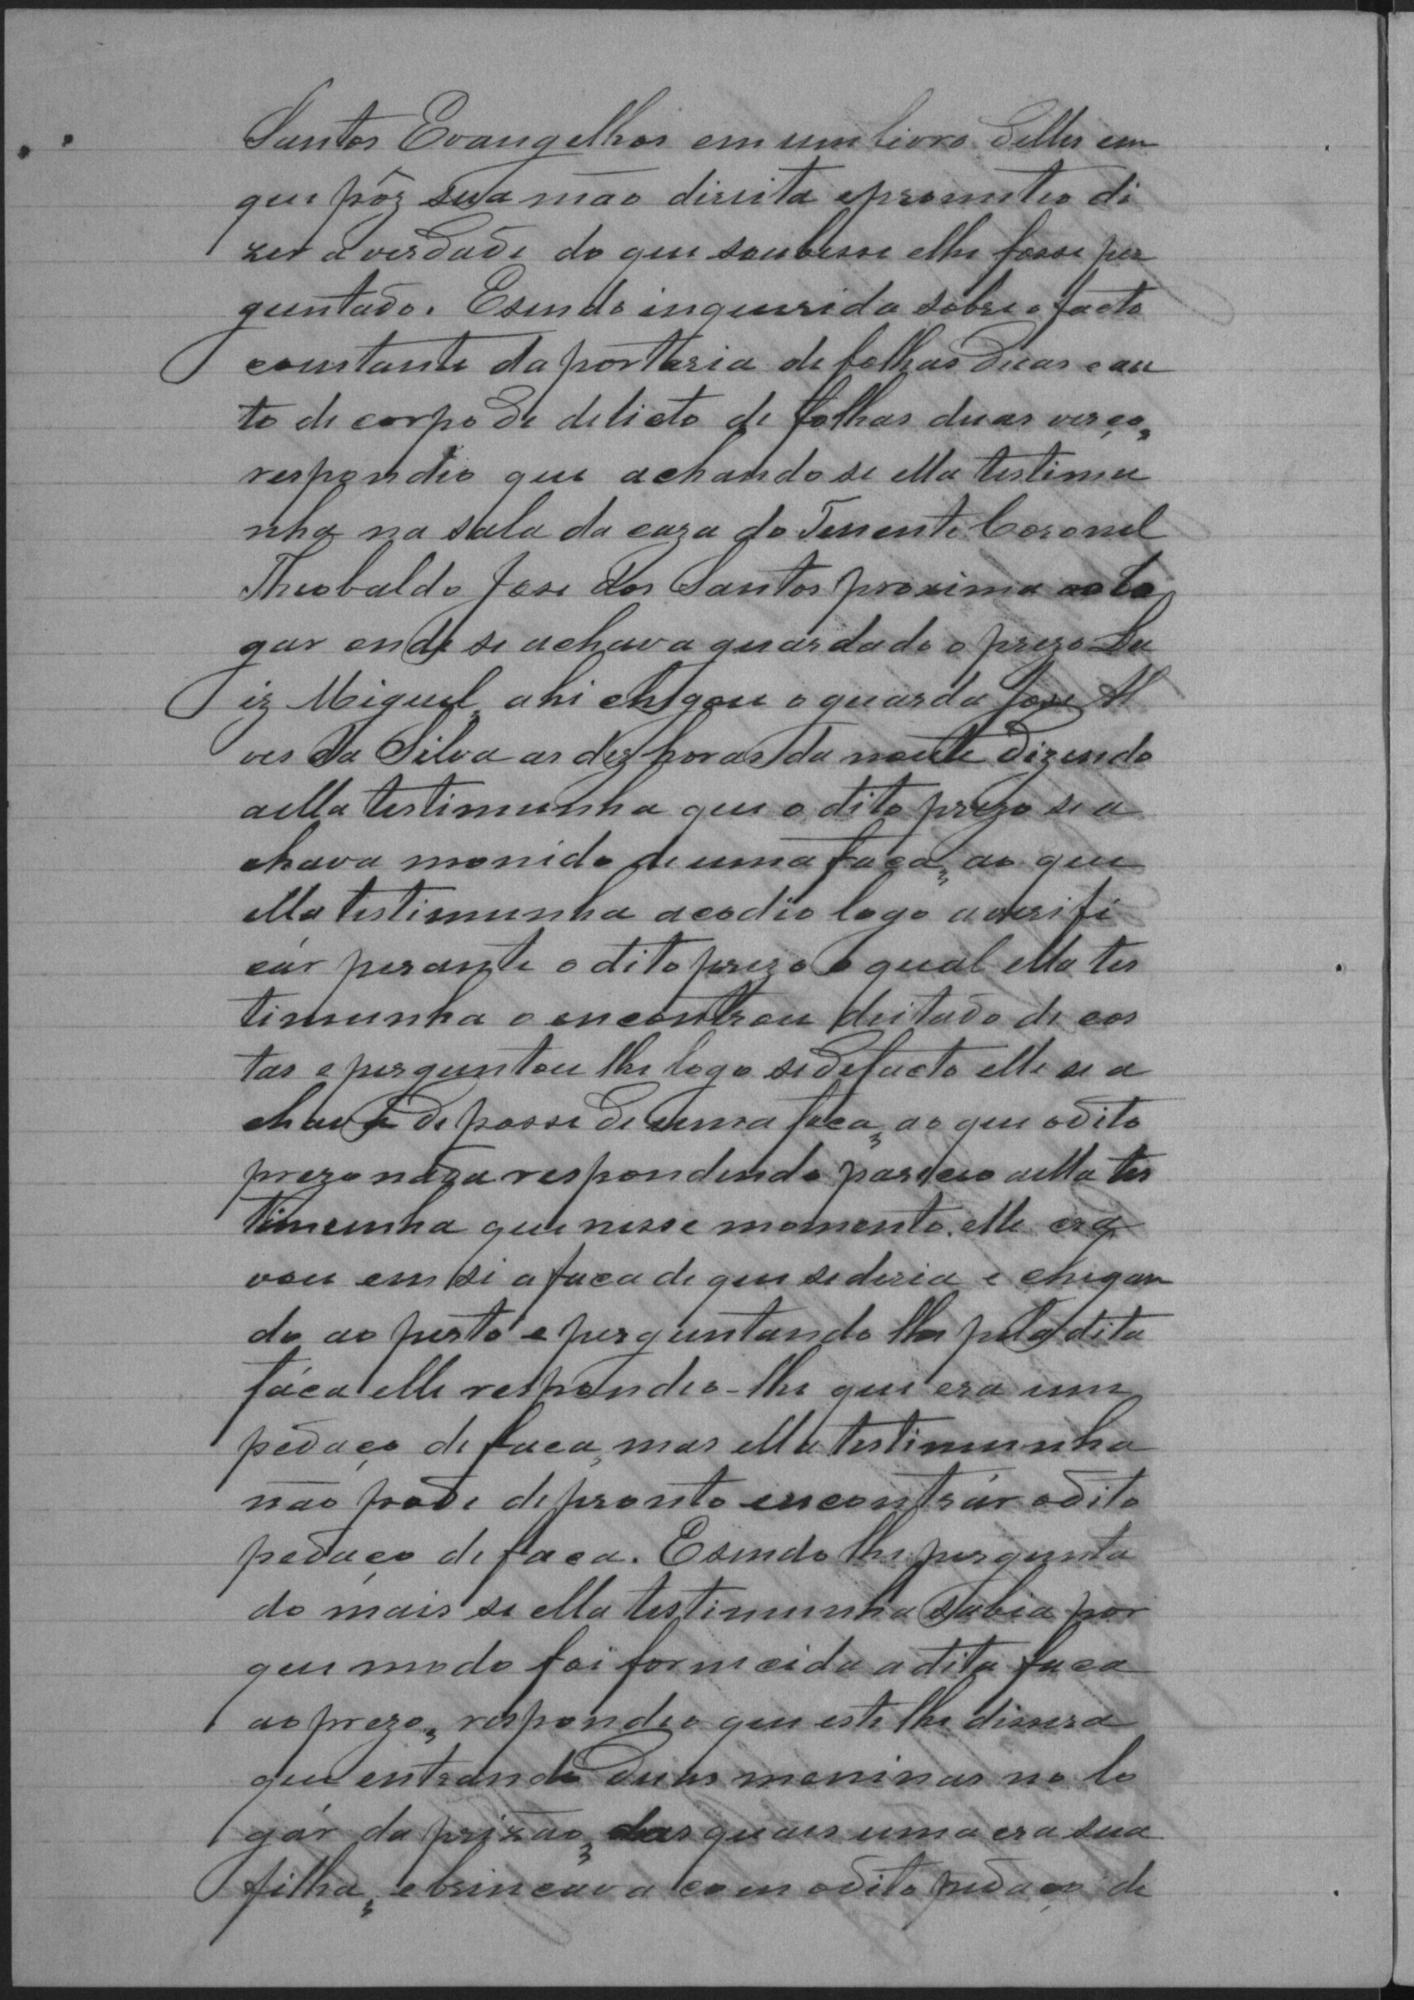 Santos Evangelhos em um livro delles em
que pôz sua mão direita e prometteo di
zer a verdade do que soubesse e lhe fosse per
guntado. E sendo inquerida sobre o facto
constante da portaria de folhas duas e au
to de corpo de delicto de folhas duas verço,
respondeo que achando se ella testimu
nha na sala da caza do Tenente Coronel
Theobaldo Jose dos Santos proxima ao lo
gar onde se achava guardado o prezo Lu
iz Miguel, ahi chegou o guarda Jose Al
ves da Silva as dez horas da noute dizendo
a ella testimunha que o dito prezo se a
chava monido de uma faca, ao que
ella testimunha acodio logo a verifi
cár perante o dito prezo o qual ella tes
timunha o encontrou deitado de cos
tas e perguntou lhe logo se de facto elle se a
chava de posse de uma faca, ao que o dito
prezo nada respondendo pareceo a ella tes
timunha que nesse momento elle cra
vou em si a faca de que se deria e chegan
do ao perto e perguntando lhe pela dita
fáca elle respondeo-lhe que era um
pedaço de faca, mas ella testimunha
não pode de pronto encontrár o dito
pedaço de faca. E sendo lhe pergunta
do mais se ella testimunha sabia por
que modo foi fornecida a dita faca
ao prezo, respondeo que este lhe dissera
que entrando duas meninas no lo
gár da prizão, das quais uma era sua
filha, e brincava com o dito pedaço de